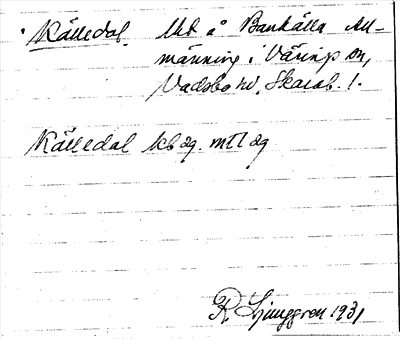 Källedal. Utt å Bankälla All-
männing i Väring sn,
Vadsbo hd, Skarab. l.
Källedal kb äg. mtl äg
R. Ljunggren 1931